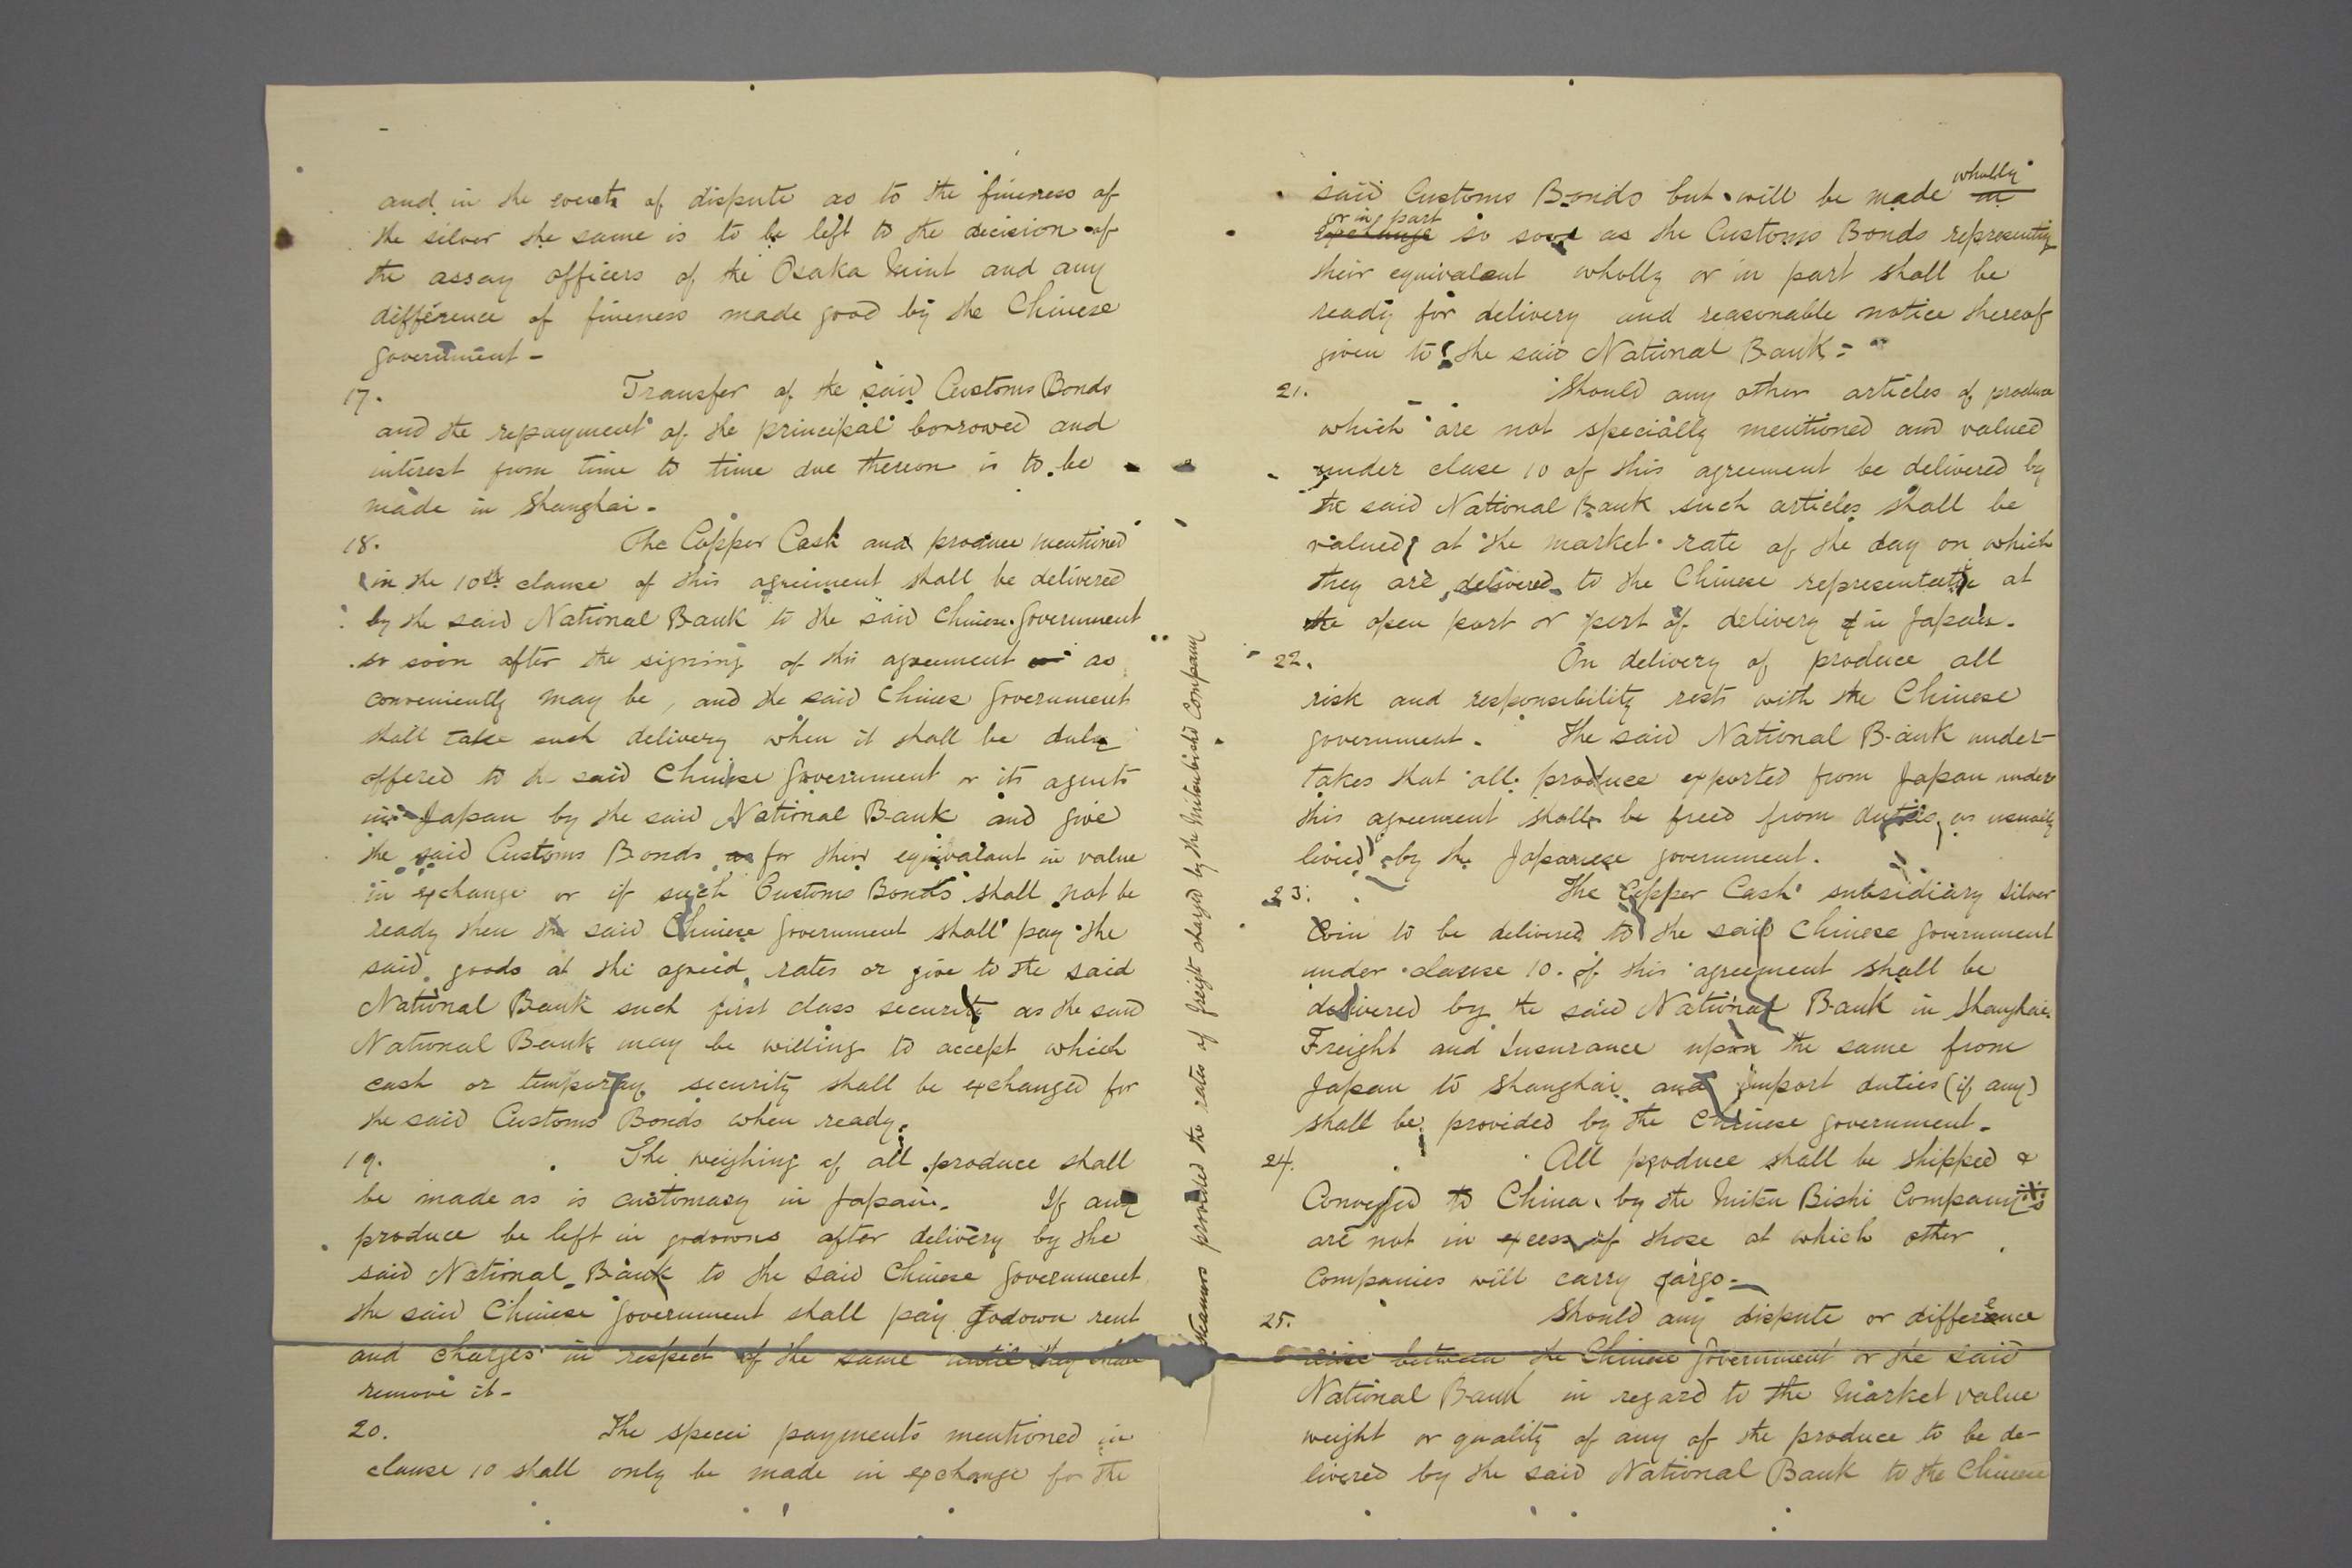 and in the event of dispute as to the fineness of
the silver the same is to be left to the decision of
the assay officers of the Osaka Mint and any
difference of fineness made good by the Chinese
government -
17. Transfer of the said Customs Bonds
and the repayment of the principal borrowed and
interest from time to time due thereon is to be
made in Shanghai.
18. The Copper Cash and produce mentioned
in the 10th clause of this agreement shall be delivered
by the said National Bank to the said Chinese Government
so soon after the signing of this agreement as
conveniently may be, and the said Chinese Government
shall take such delivery when it shall be duly
offered to the said Chinese Government or its agents
in Japan by the said National Bank and give
the said Customs Bonds for their equivalent in value
in exchange or if such Customs Bonds shall not be
ready then the said Chinese Government shall pay the
said goods at the agreed rates or give to the said
National Bank such first class security as the said
National Bank may be willing to accept which
cash or temporary security shall be exchanged for
the said Customs Bonds when ready.
19. The weighing of all produce shall
be made as is customary in Japan. If any
produce be left in godowns after delivery by the
said National Bank to the said Chinese Government
the said Chinese Government shall pay Godown rent
and charges in respect of the same until they shall
remove it -
20. The specei payments mentioned in
clause 10 shall only be made in exchange for the
steamers provided the rates of freight charged by the Mitsubishi Company
said Customs Bonds but will be made wholly
or in part
exchange so soon as the Customs Bonds representing
their equivalent wholly or in part shall be
ready for delivery and reasonable notice thereof
given to the said National Bank -
21. Should any other articles of produce
which are not specially mentioned and valued
under clase 10 of this agreement be delivered by
the said National Bank such articles shall be
valued at the market rate of the day on which
they are delivered to the Chinese representative at
the open port or port of delivery in Japan.
22. On delivery of produce all
risk and responsibility rests with the Chinese
government. The said National Bank under-
takes that all produce exported from Japan under
this agreement shall be freed from duties as usually
levied by the Japanese government.
23. The Copper Cash subsidiary silver
Coin to be delivered to the said Chinese Government
under clause 10. of this agreement shall be
delivered by the said National Bank in Shanghai.
Freight and Insurance upon the same from
Japan to Shanghai and import duties (if any)
shall be provided by the Chinese government.
24. All produce shall be shipped &
Conveyed to China by the Mitsu Bishi Company's
are not in excess of those at which other
Companies will carry cargo -
25. Should any dispute or difference
between the Chinese Government or the said
National Bank in regard to the market value
weight or quality of any of the produce to be de-
livered by the said National Bank to the Chinese